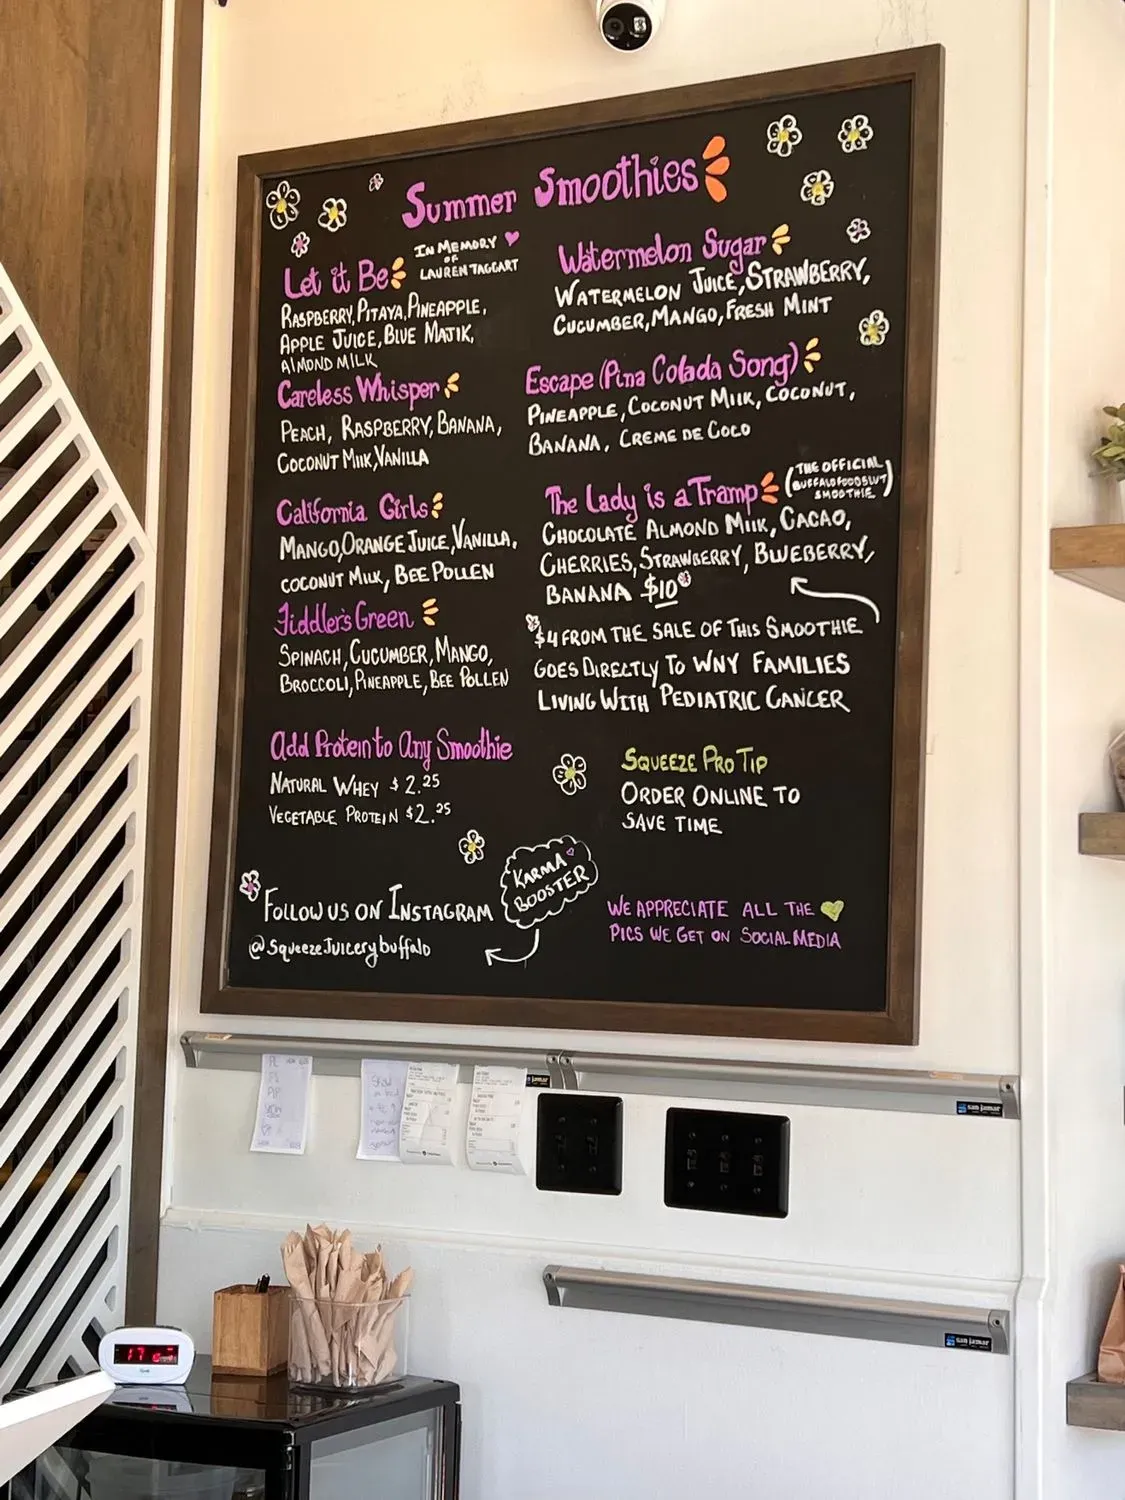 Summer Smoothies
Let it Be
IN MEMORY
OF
LAUREN TAGGART
RASPBERRY, PITAYA, PINEAPPLE,
APPLE JUICE, BLUE MAJIK,
ALMOND MILK
Careless Whisper
PEACH, RASPBERRY, BANANA,
COCONUT MILK, VANILLA
California Girls
MANGO, ORANGE JUICE, VANILLA,
COCONUT MILK, BEE POLLEN
Fiddler's Green
SPINACH, CUCUMBER, MANGO,
BROCCOLI, PINEAPPLE, BEE POLLEN
Add Protein to Any Smoothie
NATURAL WHEY $2.25
VEGETABLE PROTEIN $2.25
FOLLOW US ON INSTAGRAM
@squeezeJuicerybuffalo
KARMA
BOOSTER
Watermelon Sugar
WATERMELON JUICE, STRAWBERRY,
CUCUMBER, MANGO, FRESH MINT
Escape (Pina Colada Song)
PINEAPPLE, COCONUT MILK, COCONUT,
BANANA, CREME DE COCO
The Lady is a Tramp
(THE OFFICIAL
BUFFALOFOODSLUT
SMOOTHIE)
CHOCOLATE ALMOND MILK, CACAO,
CHERRIES, STRAWBERRY, BLUEBERRY,
BANANA $10
$4 FROM THE SALE OF THIS SMOOTHIE
GOES DIRECTLY TO WNY FAMILIES
LIVING WITH PEDIATRIC CANCER
SQUEEZE PRO TIP
ORDER ONLINE TO
SAVE TIME
WE APPRECIATE ALL THE
PICS WE GET ON SOCIAL MEDIA
san jamar
san jamar